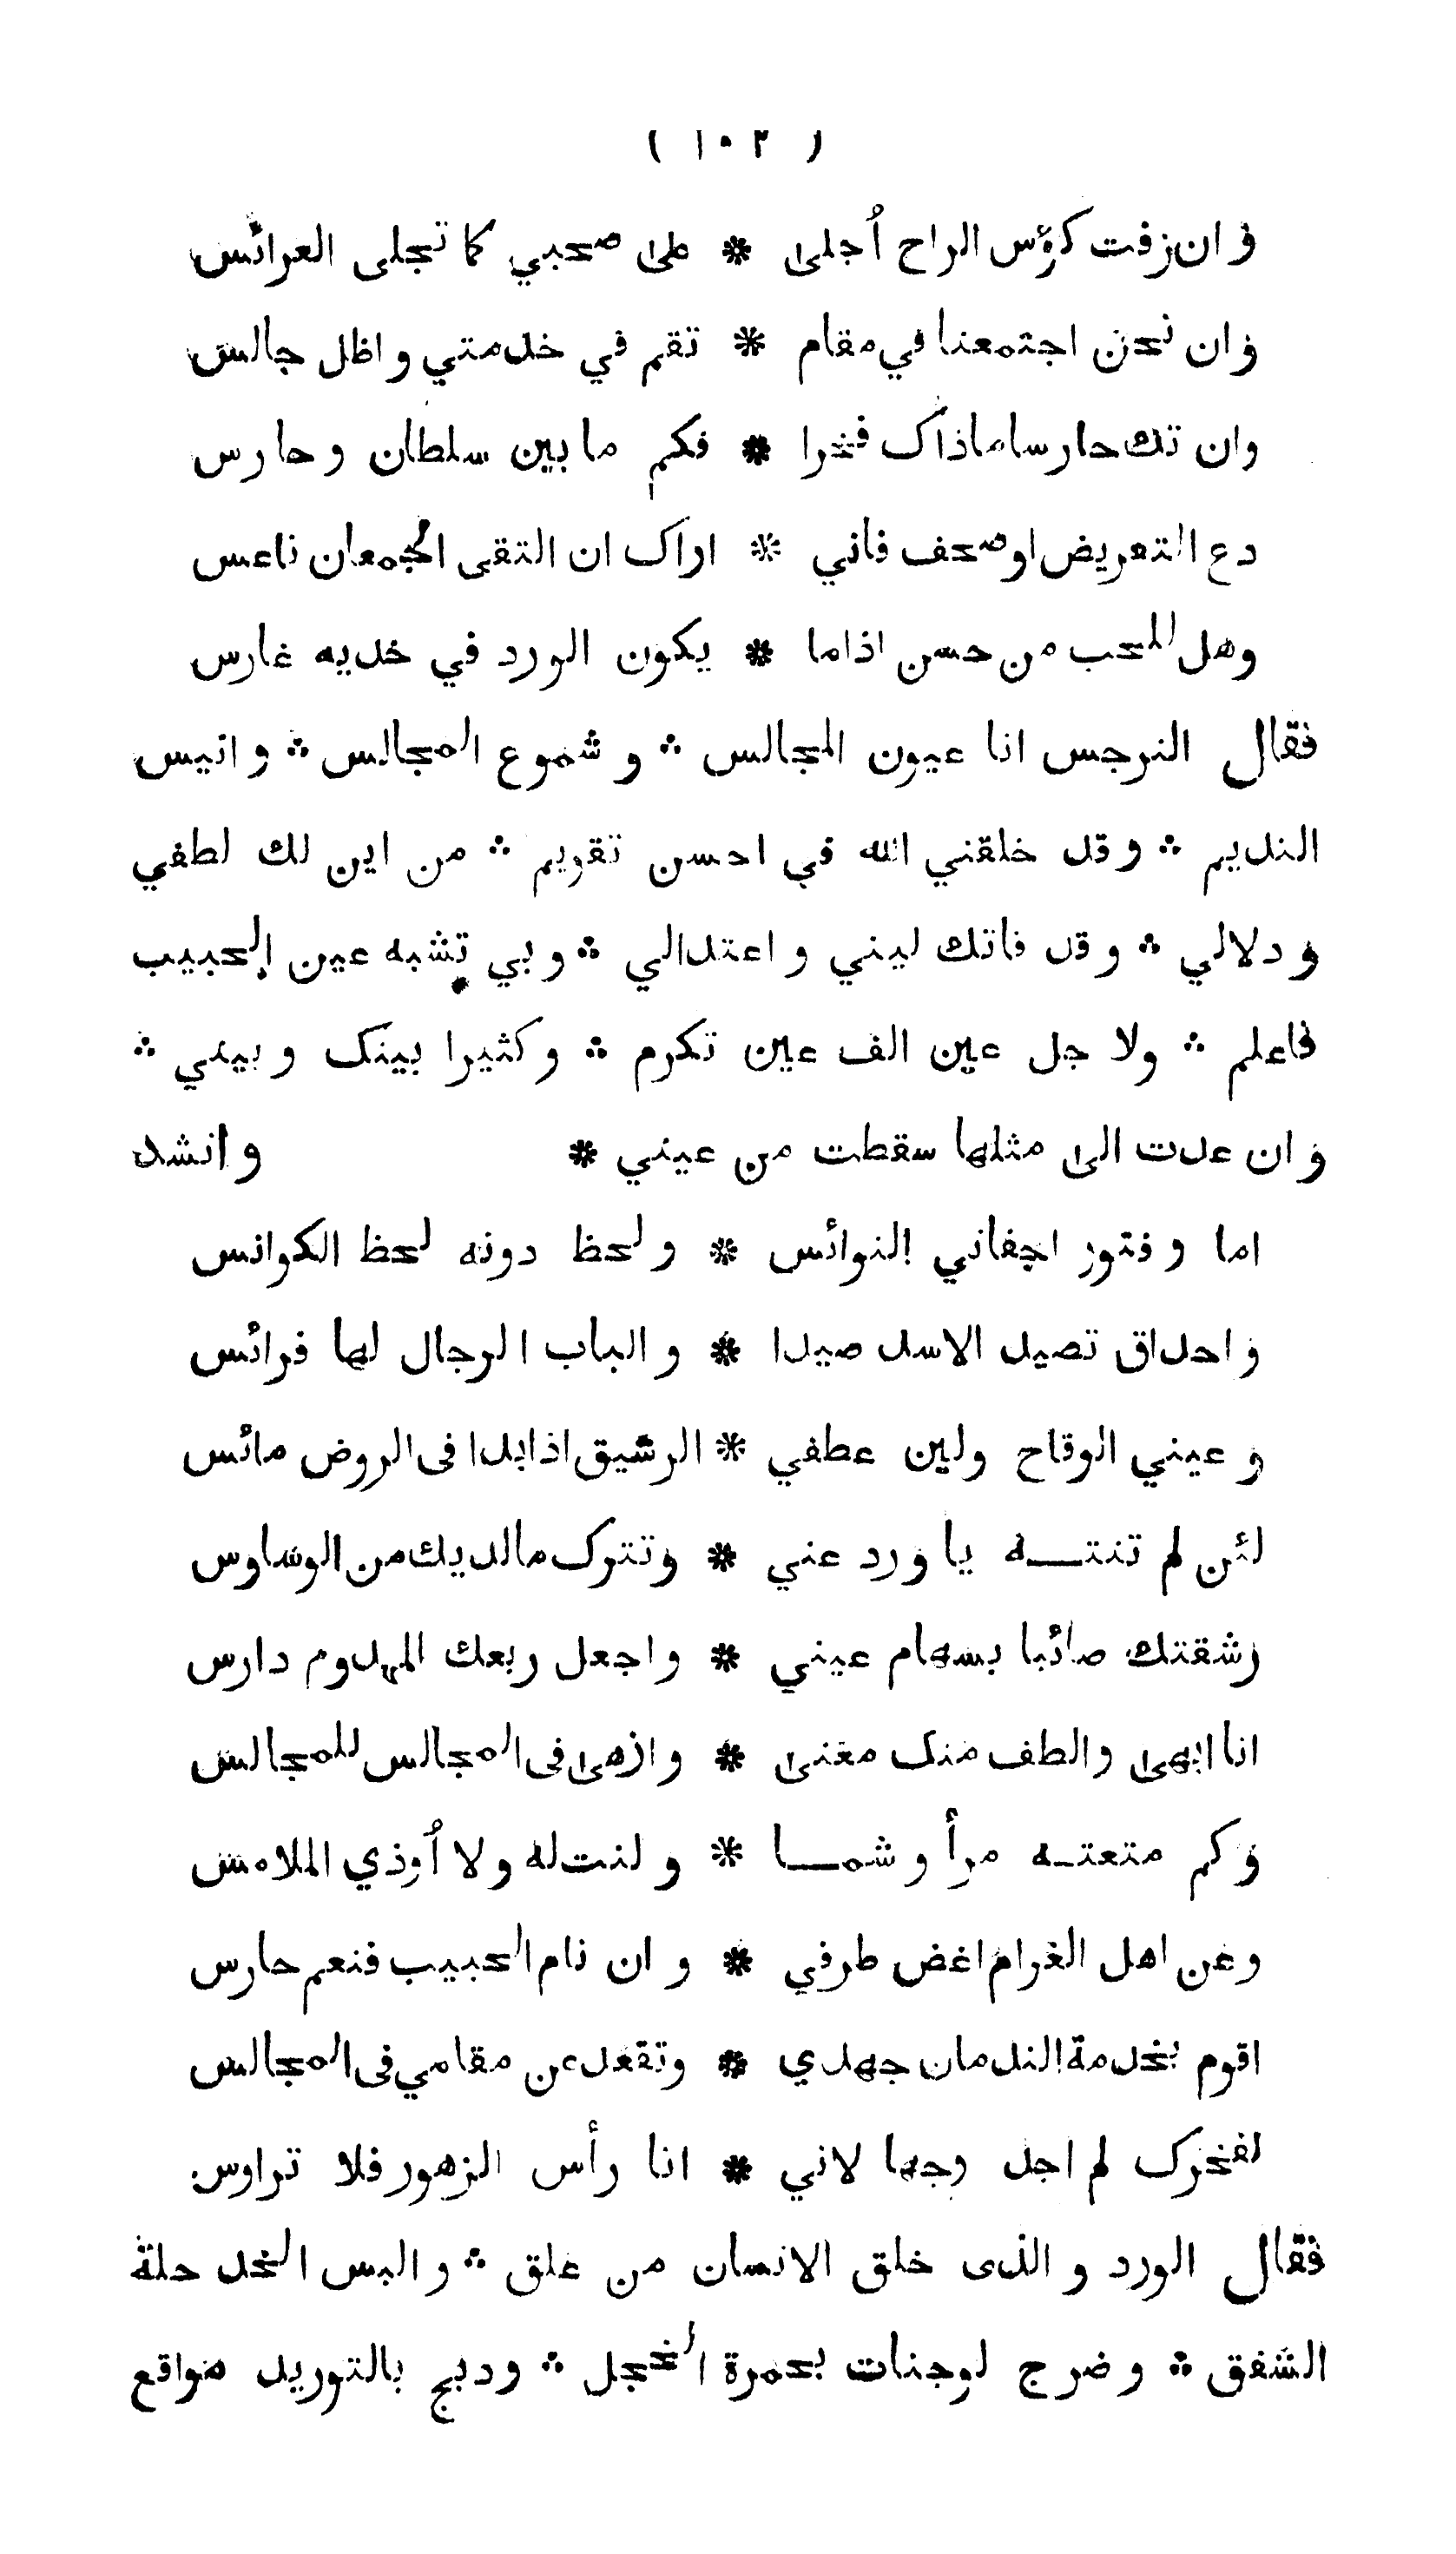 ( ١٠٢ )
وان زفت كؤس الراح أجلى * على صحبي كما تجلى العرائس
وان نحن اجتمعنا في مقام * تقم في خدمتي واظل جالس
وان تك حارسا ماذاك فخرا * فكم ما بين سلطان وحارس
دع التعريض او صحف فاني * اراك ان التقى الجمعان ناعس
وهل للمحب من حسن اذاما * يكون الورد في خديه غارس
فقال النرجس انا عيون المجالس ∴ وشموع المجالس ∴ وانيس
النديم ∴ وقد خلقني الله في احسن تقويم ∴ من اين لك لطفي
ودلالي ∴ وقد فاتك ليني واعتدالي ∴ وبي تشبه عين الحبيب
فاعلم ∴ ولا جل عين الف عين تكرم ∴ وكثيرا بينك وبيني ∴
وان عدت الى مثلها سقطت من عيني * وانشد
اما وفتور اجفاني النوائس * ولحظ دونه لحظ الكوانس
واحداق تصيد الاسد صيدا * والباب الرجال لها فرائس
وعيني الوقاح ولين عطفي * الرشيق اذا بدا فى الروض مائس
لئن لم تنتـــه يا ورد عني * وتترك مالديك من الوساوس
رشقتك صائبا بسهام عيني * واجعل ربعك المهدوم دارس
انا ابهى والطف منك مغنى * وازهى فى المجالس للمجالس
وكم متعتـه مرأ وشمـــا * ولنت له ولا أوذي الملامس
وعن اهل الغرام اغض طرفي * وان نام الحبيب فنعم حارس
اقوم بخدمة الندمان جهدي * وتقعد عن مقامي فى المجالس
لفخرك لم اجد وجها لاني * انا رأس الزهور فلا تراوس
فقال الورد والذى خلق الانسان من علق ∴ والبس الخد حلة
الشفق ∴ وضرج لوجنات بحمرة الخجل ∴ ودبج بالتوريد مواقع